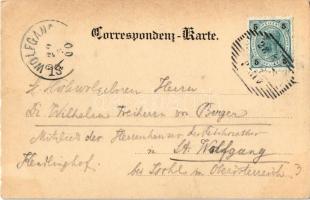 WOLFGANG
Correspondenz-Karte.
5 5
Hochwolgeboren Herrn
Dr Wilhelm Freiherrn von Berger
Mitglied des Herrenhauses des Reichsrathes
in St. Wolfgang
bei Ischl in Oberösterreich